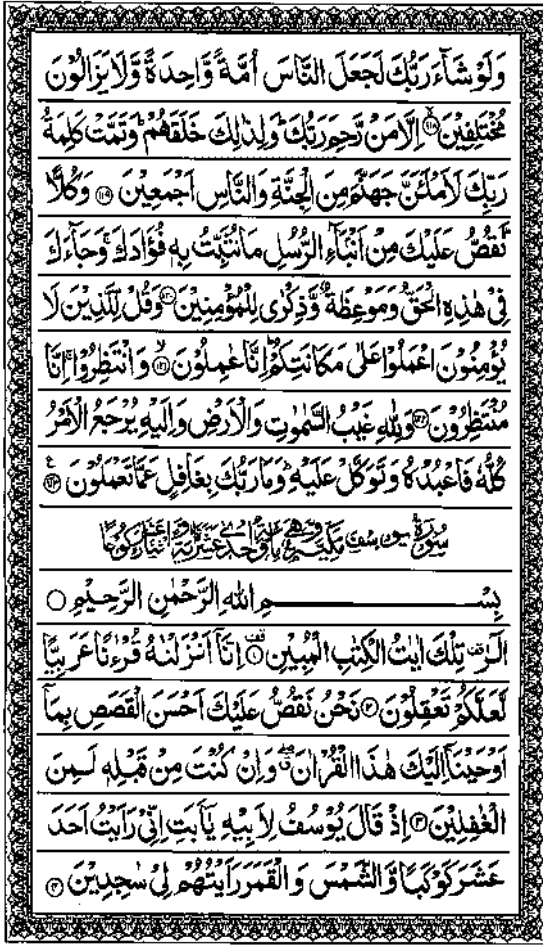 وَلَوْ شَآءَ رَبُّكَ لَجَعَلَ النَّاسَ اُمَّةً وَّاحِدَةً وَّلَا يَزَالُوْنَ
مُخْتَلِفِيْنَ ۝١١٨ اِلَّا مَنْ رَّحِمَ رَبُّكَ ؕ وَلِذٰلِكَ خَلَقَهُمْ ؕ وَتَمَّتْ كَلِمَةُ
رَبِّكَ لَاَمْلَئَنَّ جَهَنَّمَ مِنَ الْجِنَّةِ وَالنَّاسِ اَجْمَعِيْنَ ۝١١٩ وَكُلًّا
نَّقُصُّ عَلَيْكَ مِنْ اَنْۢبَآءِ الرُّسُلِ مَا نُثَبِّتُ بِهٖ فُؤَادَكَ ۚ وَجَآءَكَ
فِيْ هٰذِهِ الْحَقُّ وَمَوْعِظَةٌ وَّذِكْرٰى لِلْمُؤْمِنِيْنَ ۝١٢٠ وَقُلْ لِّلَّذِيْنَ لَا
يُؤْمِنُوْنَ اعْمَلُوْا عَلٰى مَكَانَتِكُمْ ؕ اِنَّا عٰمِلُوْنَ ۝١٢١ۙ وَانْتَظِرُوْا ۚ اِنَّا
مُنْتَظِرُوْنَ ۝١٢٢ وَلِلّٰهِ غَيْبُ السَّمٰوٰتِ وَالْاَرْضِ وَاِلَيْهِ يُرْجَعُ الْاَمْرُ
كُلُّهٗ فَاعْبُدْهُ وَتَوَكَّلْ عَلَيْهِ ؕ وَمَا رَبُّكَ بِغَافِلٍ عَمَّا تَعْمَلُوْنَ ۝١٢٣ ع
سُوْرَةُ يُوْسُفَ مَكِّيَّةٌ وَّهِيَ مِائَةٌ وَّاِحْدٰى عَشْرَةَ اٰيَةً وَّاثْنَا عَشَرَ رُكُوْعًا
بِسْمِ اللهِ الرَّحْمٰنِ الرَّحِيْمِ ۝
الٓرٰ ۫ تِلْكَ اٰيٰتُ الْكِتٰبِ الْمُبِيْنِ ۝١ اِنَّآ اَنْزَلْنٰهُ قُرْءٰنًا عَرَبِيًّا
لَّعَلَّكُمْ تَعْقِلُوْنَ ۝٢ نَحْنُ نَقُصُّ عَلَيْكَ اَحْسَنَ الْقَصَصِ بِمَآ
اَوْحَيْنَآ اِلَيْكَ هٰذَا الْقُرْاٰنَ ۖ وَاِنْ كُنْتَ مِنْ قَبْلِهٖ لَمِنَ
الْغٰفِلِيْنَ ۝٣ اِذْ قَالَ يُوْسُفُ لِاَبِيْهِ يٰٓاَبَتِ اِنِّيْ رَاَيْتُ اَحَدَ
عَشَرَ كَوْكَبًا وَّالشَّمْسَ وَالْقَمَرَ رَاَيْتُهُمْ لِيْ سٰجِدِيْنَ ۝٤